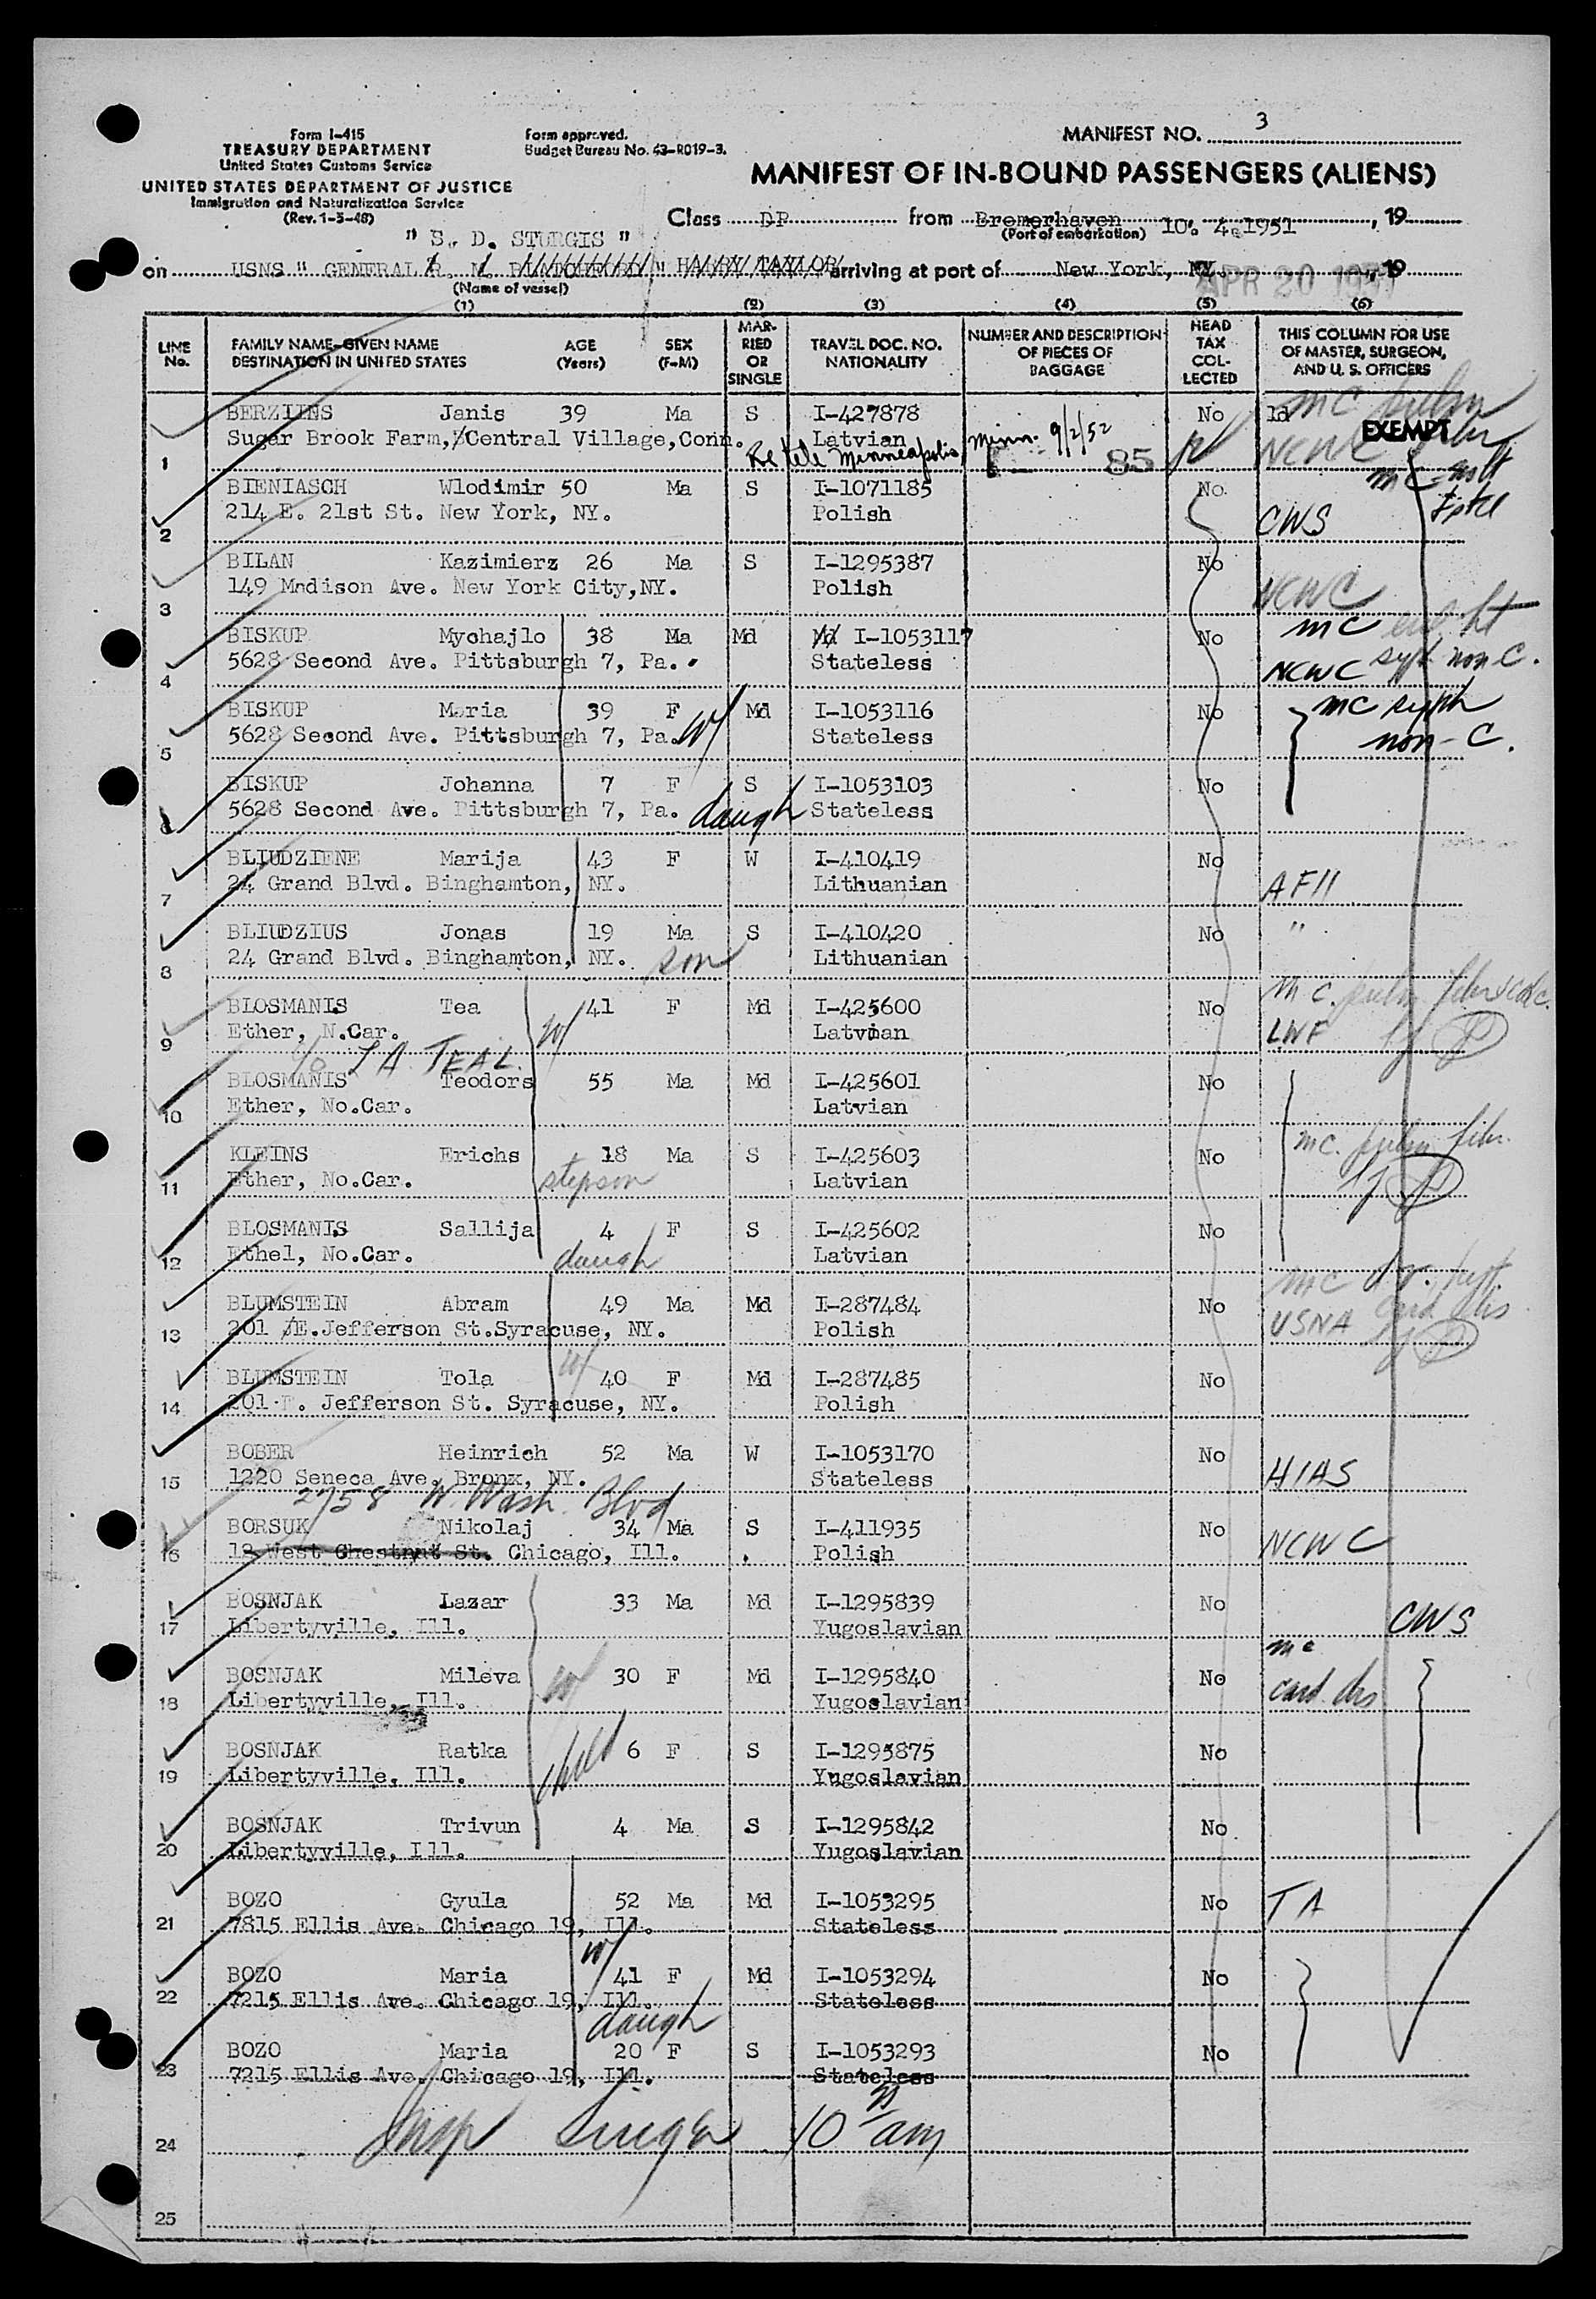 Form I-415
TREASURY DEPARTMENT
United States Customs Service
UNITED STATES DEPARTMENT OF JUSTICE
Immigration and Naturalization Service
(Rev. 1-3-48)
Form approved.
Budget Bureau No. 43-R019-3.
MANIFEST NO. 3
MANIFEST OF IN-BOUND PASSENGERS (ALIENS)
Class DP from Bremerhaven 10. 4.1951, 19
(Port of embarkation)
" S. D. STURGIS "
on USNS " GENERAL HARRY TAYLOR arriving at port of New York, NY. , 19
APR 20 1951
(Name of vessel)
(1) (2) (3) (4) (5) (6)
LINE No.
FAMILY NAME-GIVEN NAME
DESTINATION IN UNITED STATES
AGE (Years)
SEX (F-M)
MARRIED OR SINGLE
TRAVEL DOC. NO.
NATIONALITY
NUMBER AND DESCRIPTION OF PIECES OF BAGGAGE
HEAD TAX COLLECTED
THIS COLUMN FOR USE OF MASTER, SURGEON, AND U. S. OFFICERS
BERZIINS Janis 39 Ma S I-427878 No ld mc pulm
1 Sugar Brook Farm, Central Village, Conn. Latvian EXEMPT
Re tele Minneapolis, Minn. 9/2/52 85 NCWC
BIENIASCH Wlodimir 50 Ma S I-1071185 No mc
2 214 E. 21st St. New York, NY. Polish CWS
BILAN Kazimierz 26 Ma S I-1295387 No
3 149 Madison Ave. New York City,NY. Polish NCWC
BISKUP Mychajlo 38 Ma Md I-1053117 No mc
4 5628 Second Ave. Pittsburgh 7, Pa. Stateless NCWC syph non C.
BISKUP Maria 39 F Md I-1053116 No mc syph
5 5628 Second Ave. Pittsburgh 7, Pa. W/ Stateless non-C.
BISKUP Johanna 7 F S I-1053103 No
6 5628 Second Ave. Pittsburgh 7, Pa. daugh Stateless
BLIUDZIENE Marija 43 F W I-410419 No
7 24 Grand Blvd. Binghamton, NY. Lithuanian AFII
BLIUDZIUS Jonas 19 Ma S I-410420 No "
8 24 Grand Blvd. Binghamton, NY. son Lithuanian
BLOSMANIS Tea 41 F Md I-425600 No mc. pulm
9 Ether, N.Car. W/ Latvian LWF
c/o TEAL
BLOSMANIS Teodors 55 Ma Md I-425601 No
10 Ether, No.Car. Latvian
KLEINS Erichs 18 Ma S I-425603 No mc. pulm fibr.
11 Ether, No.Car. stepson Latvian
BLOSMANIS Sallija 4 F S I-425602 No
12 Ethel, No.Car. daugh Latvian
BLUMSTEIN Abram 49 Ma Md I-287484 No mc
13 201 E.Jefferson St.Syracuse, NY. Polish USNA card dis
BLUMSTEIN Tola W/ 40 F Md I-287485 No
14 201 E. Jefferson St. Syracuse, NY. Polish
BOBER Heinrich 52 Ma W I-1053170 No
15 1220 Seneca Ave. Bronx, NY. Stateless HIAS
2758 W. Wash. Blvd
BORSUK Nikolaj 34 Ma S I-411935 No
16 12 West Chestnut St. Chicago, Ill. Polish NCWC
BOSNJAK Lazar 33 Ma Md I-1295839 No
17 Libertyville, Ill. Yugoslavian CWS
BOSNJAK Mileva W/ 30 F Md I-1295840 No mc
18 Libertyville, Ill. Yugoslavian card. dis
BOSNJAK Ratka 6 F S I-1295875 No
19 Libertyville, Ill. child Yugoslavian
BOSNJAK Trivun 4 Ma S I-1295842 No
20 Libertyville, Ill. Yugoslavian
BOZO Gyula 52 Ma Md I-1053295 No TA
21 7815 Ellis Ave. Chicago 19, Ill. Stateless
BOZO Maria W/ 41 F Md I-1053294 No
22 7215 Ellis Ave. Chicago 19, Ill. Stateless
daugh
BOZO Maria 20 F S I-1053293 No
23 7215 Ellis Ave. Chicago 19, Ill. Stateless
24 Insp 10 am
25